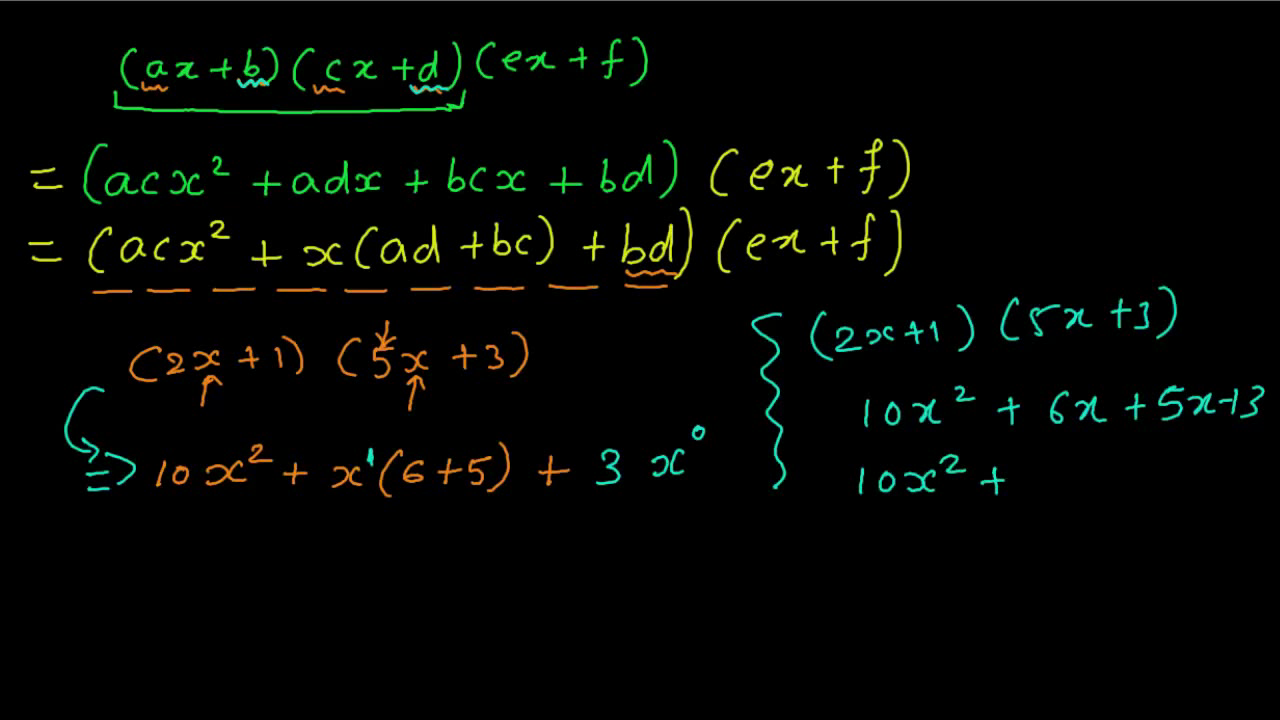 (ax+b)(cx+d)(ex+f)
= (acx² + adx + bcx + bd) (ex+f)
= (acx² + x(ad+bc) + bd) (ex+f)
(2x+1) (5x+3)
⇒ 10x² + x¹(6+5) + 3 x⁰
(2x+1) (5x+3)
10x² + 6x + 5x+3
10x² +